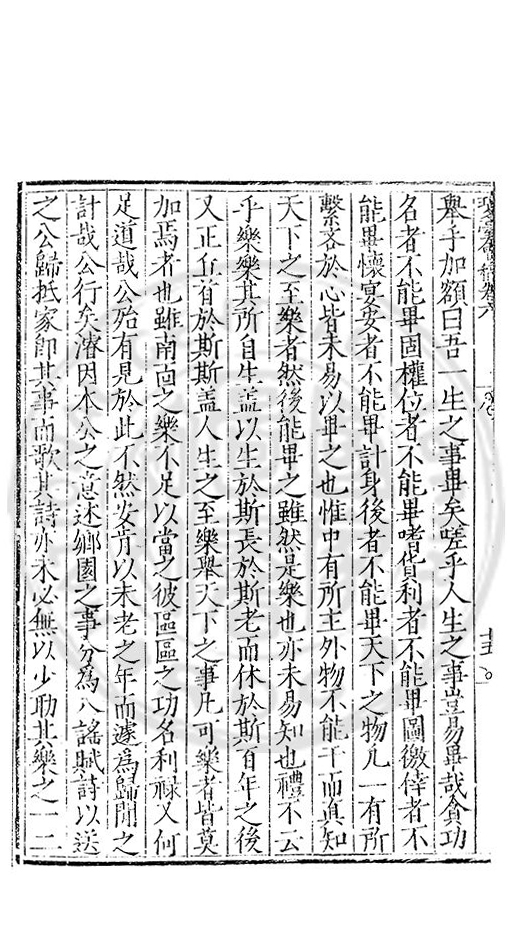 瓊臺會稿卷六
十五
舉手加額曰吾一生之事畢矣嗟乎人生之事豈易畢哉貪功
名者不能畢固權位者不能畢嗜貨利者不能畢圖徼倖者不
能畢懷宴安者不能畢計身後者不能畢天下之物凡一有所
繫吝於心皆未易以畢之也惟中有所主外物不能干而真知
天下之至樂者然後能畢之雖然是樂也亦未易知也禮不云
乎樂樂其所自生蓋以生於斯長於斯老而休於斯百年之後
又正丘首於斯斯蓋人生之至樂舉天下之事凡可樂者皆莫
加焉者也雖南面之樂不足以當之彼區區之功名利祿又何
足道哉公殆有見於此不然安肯以未老之年而遽為歸閒之
計哉公行矣濬因本公之意述鄉園之事分為八謠賦詩以送
之公歸抵家即其事而歌其詩亦未必無以少助其樂之一二